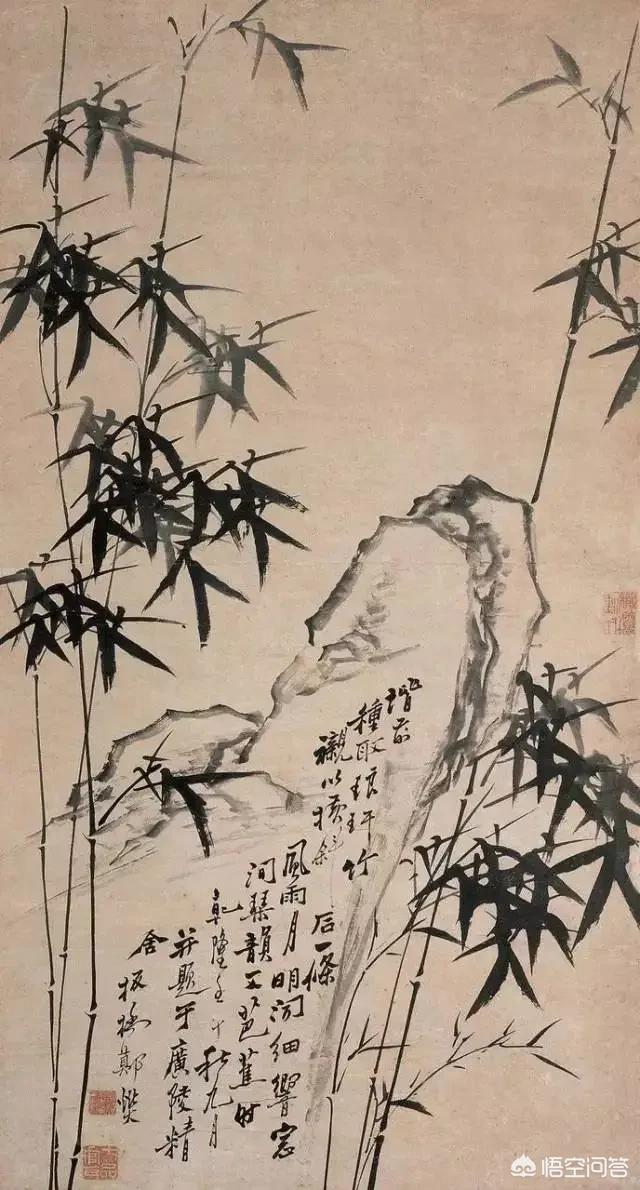 階前
種取琅玕竹
襯以橫斜石一條
風雨月明聞細響窓
間琴韻又芭蕉时
乾隆壬午秋九月
并題于廣陵精
舍板橋鄭燮
悟空问答